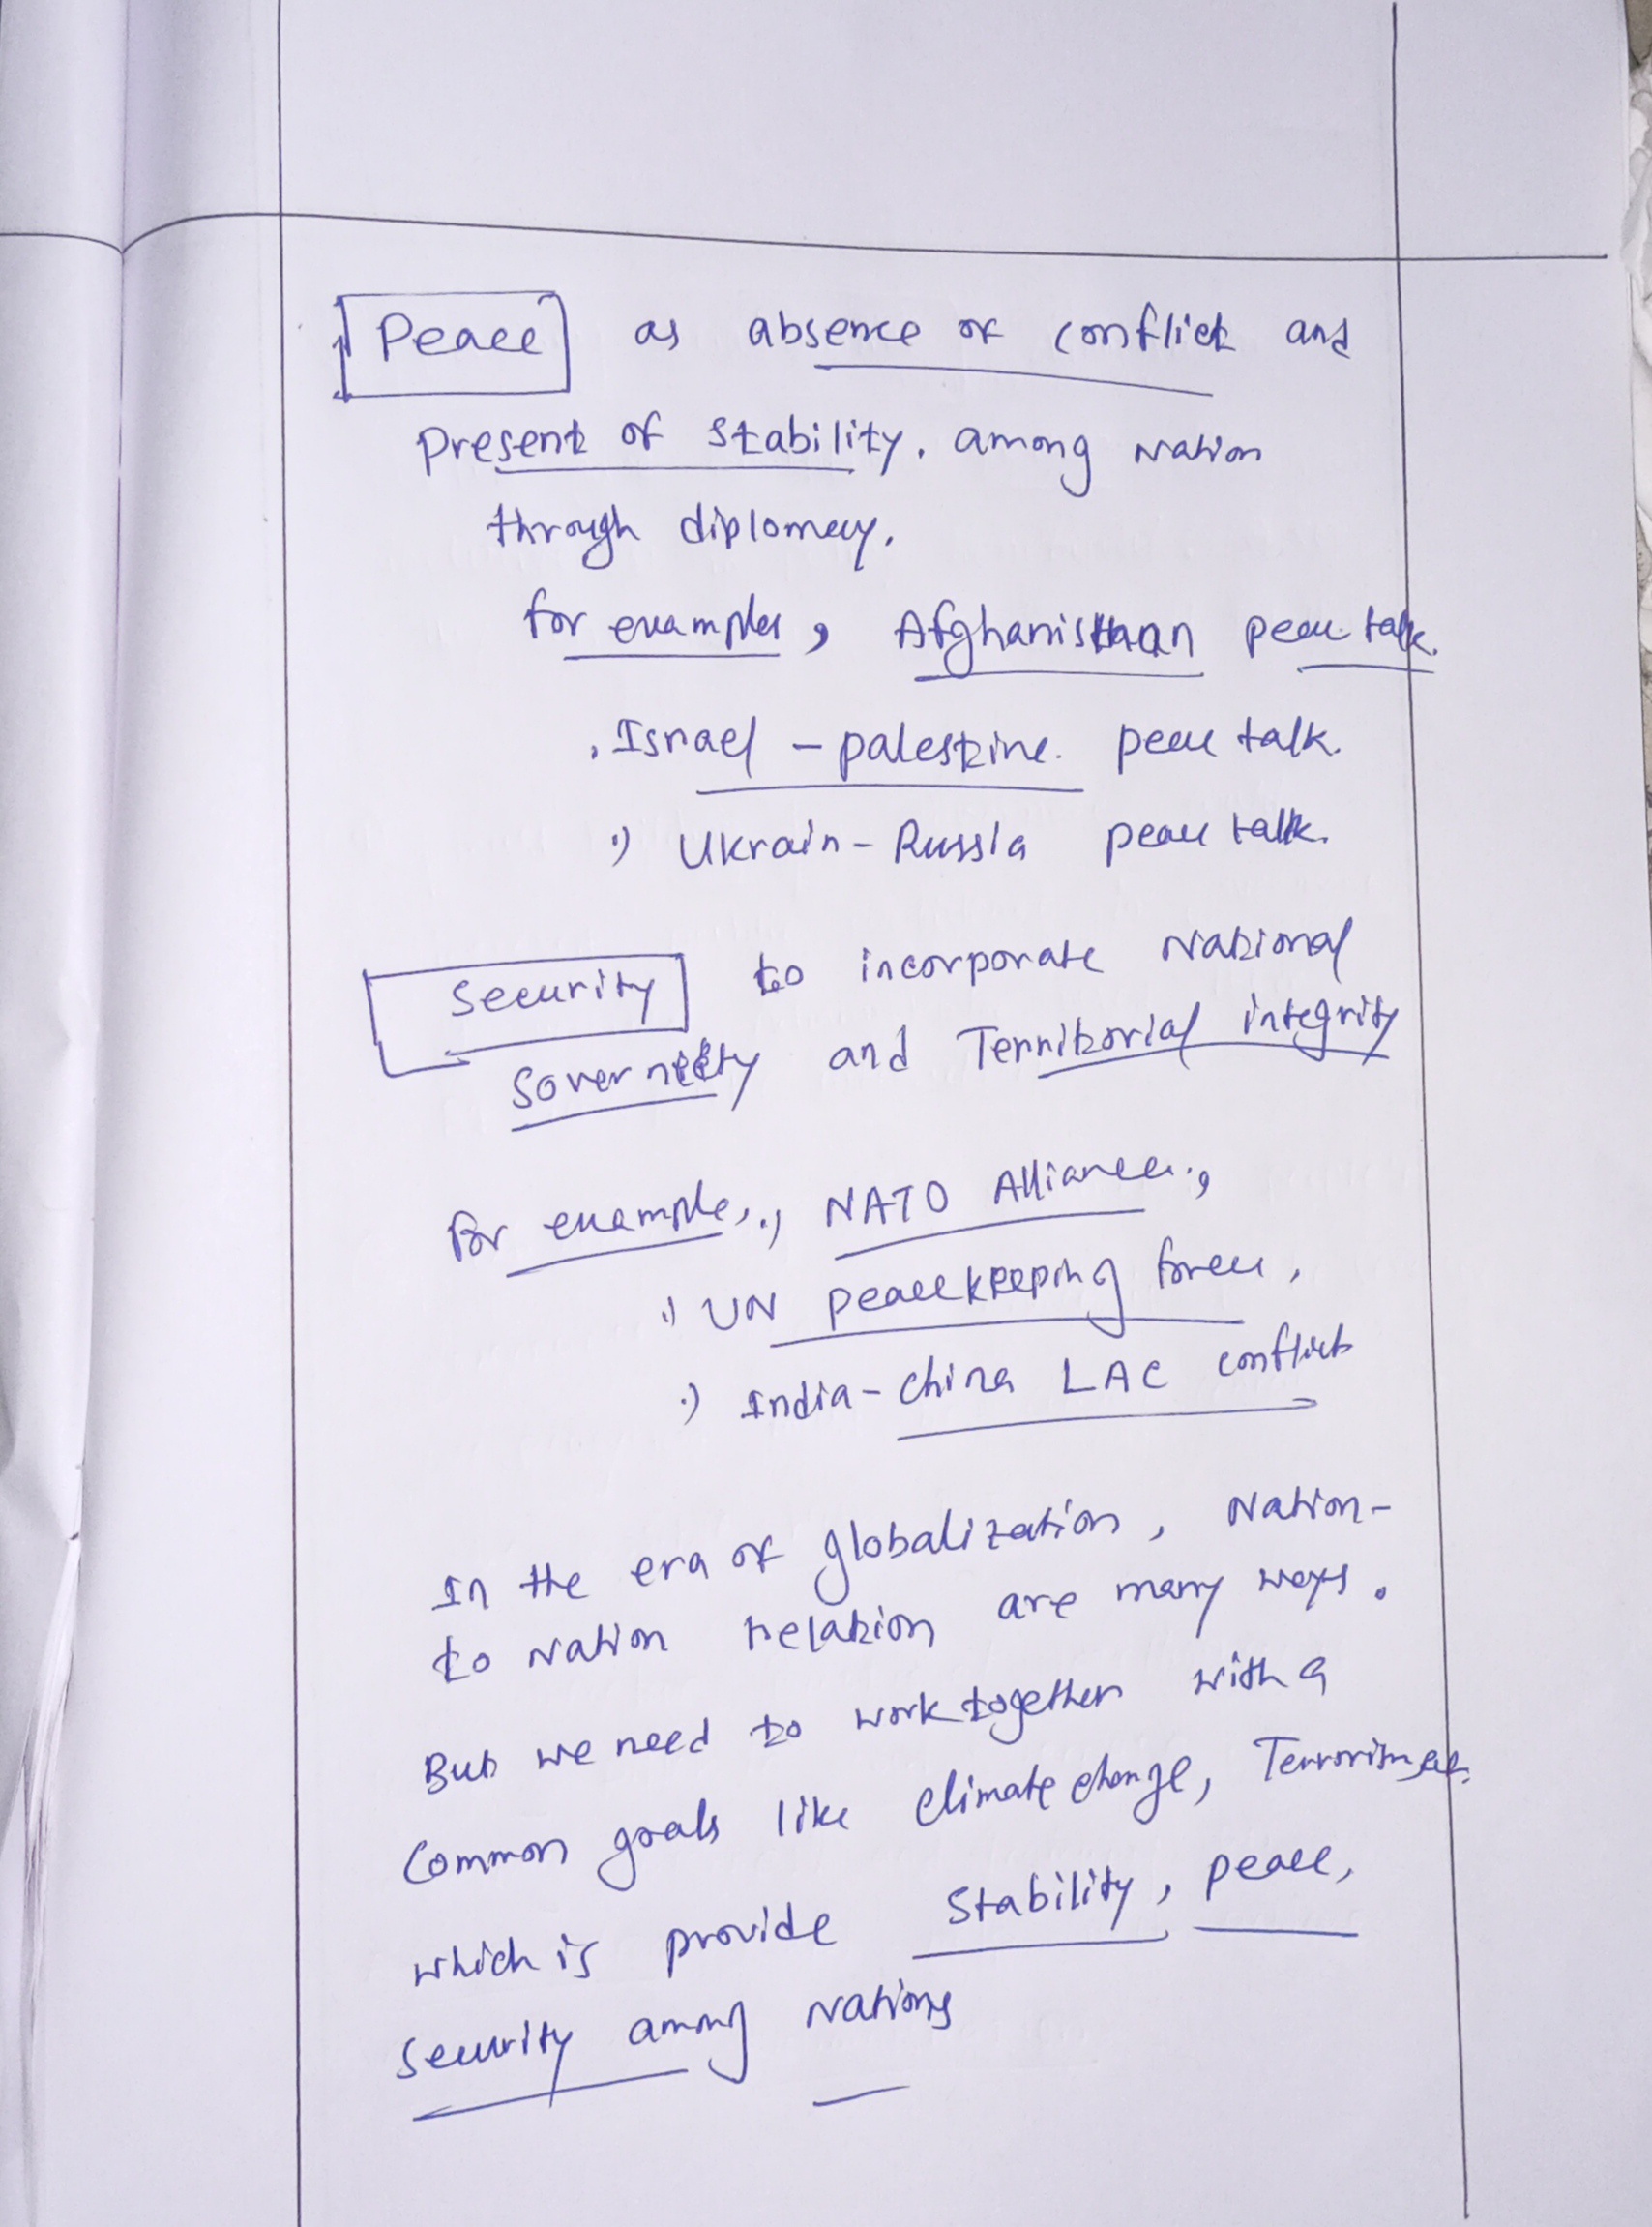 Peace as absence of conflict and
Present of stability. among Nation
through diplomacy.
for examples, Afghanisthan peace talk.
Israel - palestine. peace talk.
Ukrain - Russia peace talk.
Security to incorporate National
and Territorial integrity
For example., NATO Alliance.,
UN peacekeeping force,
India - china LAC conflict
In the era of globalization, Nation-
to Nation relation are many ways.
But we need to work together with a
Common goals like climate change, Terrorism etc.
which is provide stability, peace,
security among Nations